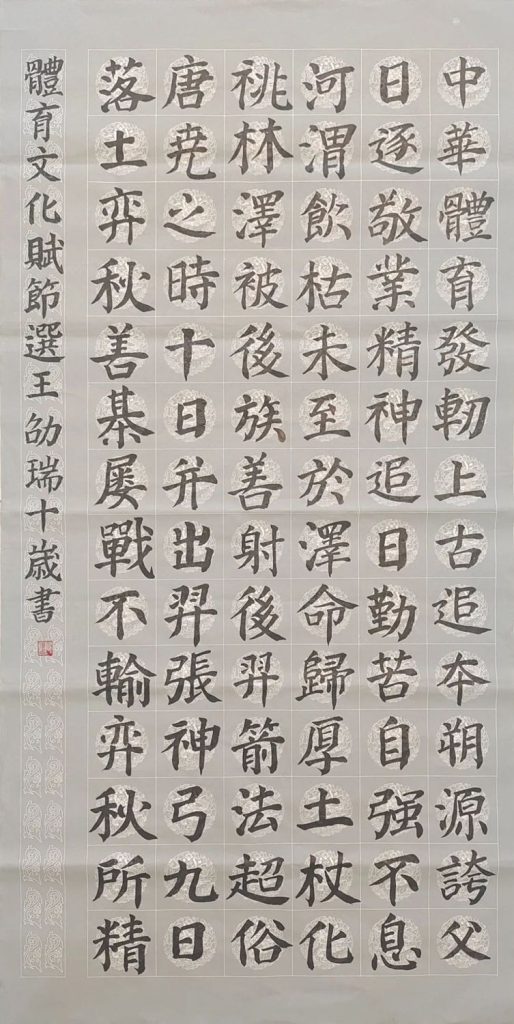 中華體育發軔上古追本朔源誇父
日逐敬業精神追日勤苦自强不息
河渭飲枯未至於澤命歸厚土杖化
桃林澤被後族善射後羿箭法超俗
唐尭之時十日并出羿張神弓九日
落土弈秋善棊屡戰不輸弈秋所精
體育文化賦節選王劭瑞十歲書